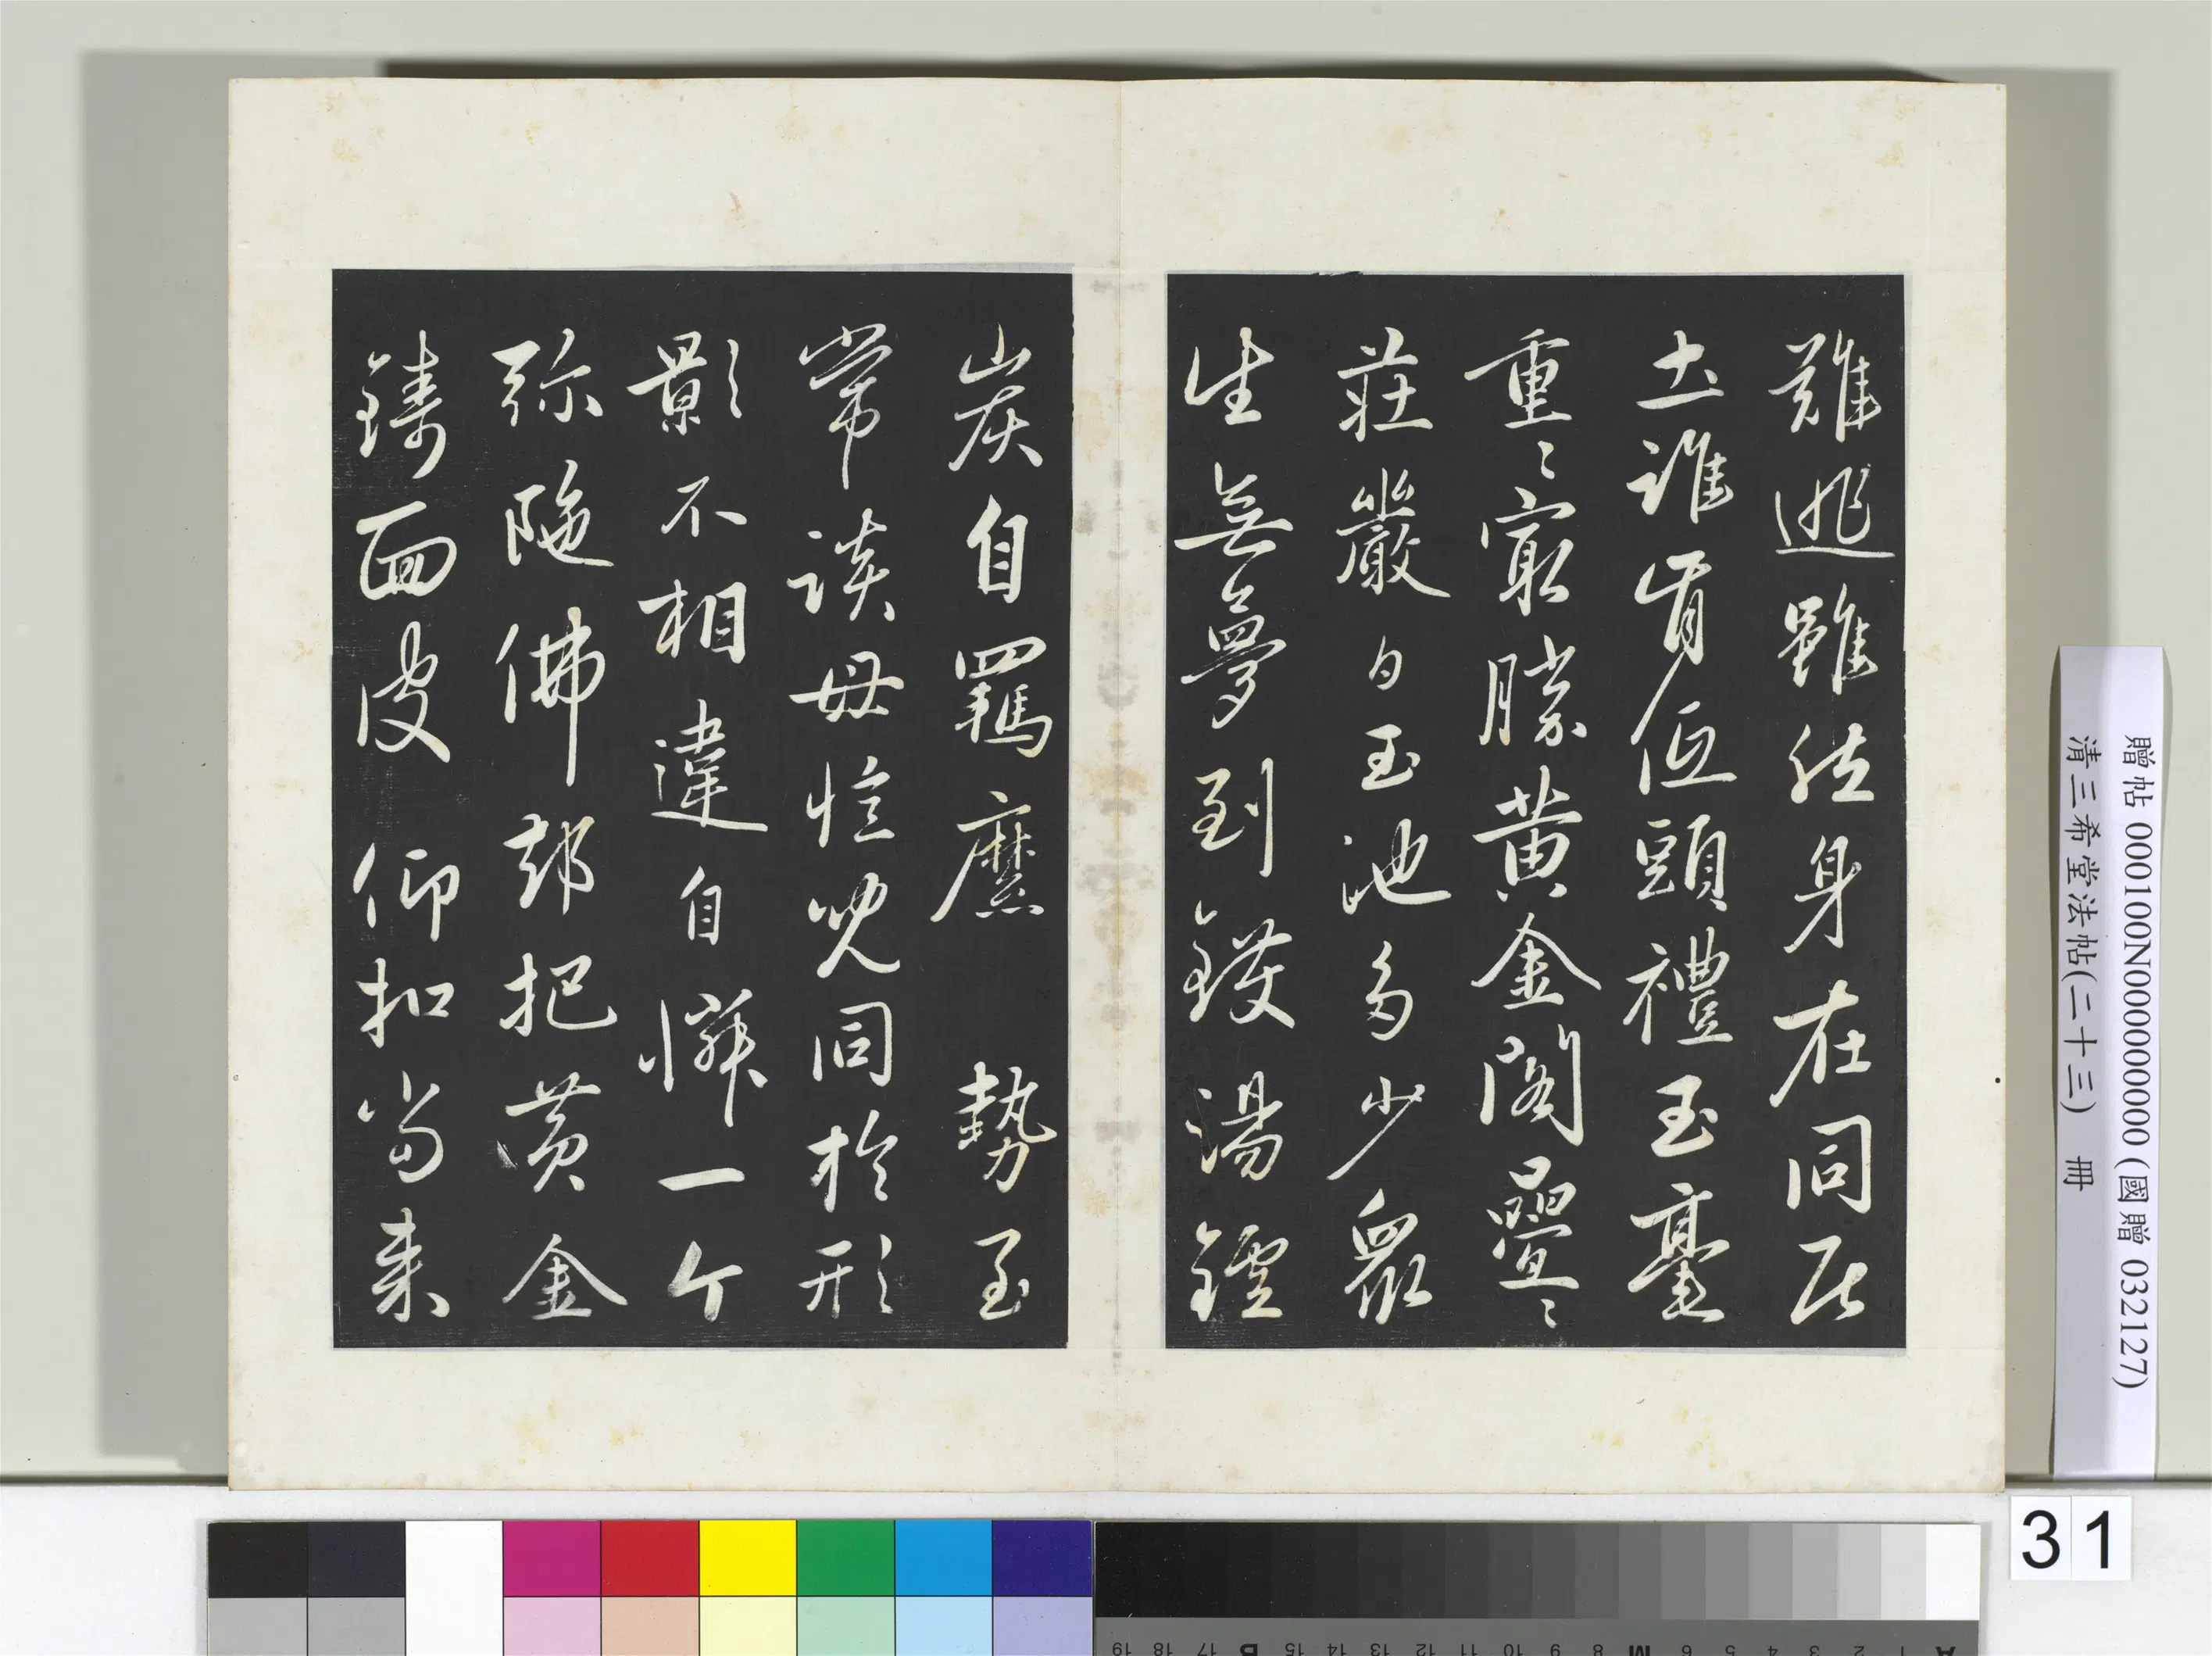 難逃雖然身在同居
土誰肯低頭禮玉毫
重〻㝡勝黃金閣疊〻
莊嚴白玉池多少眾
生無夢到鑊湯鑪
炭自羈縻 勢至
常談母憶兒同於形
影不相違自憐一个
弥陁佛却把黃金
鑄面皮仰扣當來
贈帖 000100N000000000 (國贈 032127)
清三希堂法帖(二十三) 冊
31
A 1 2 3 4 5 6 M 8 9 10 11 12 13 14 15 B 17 18 19